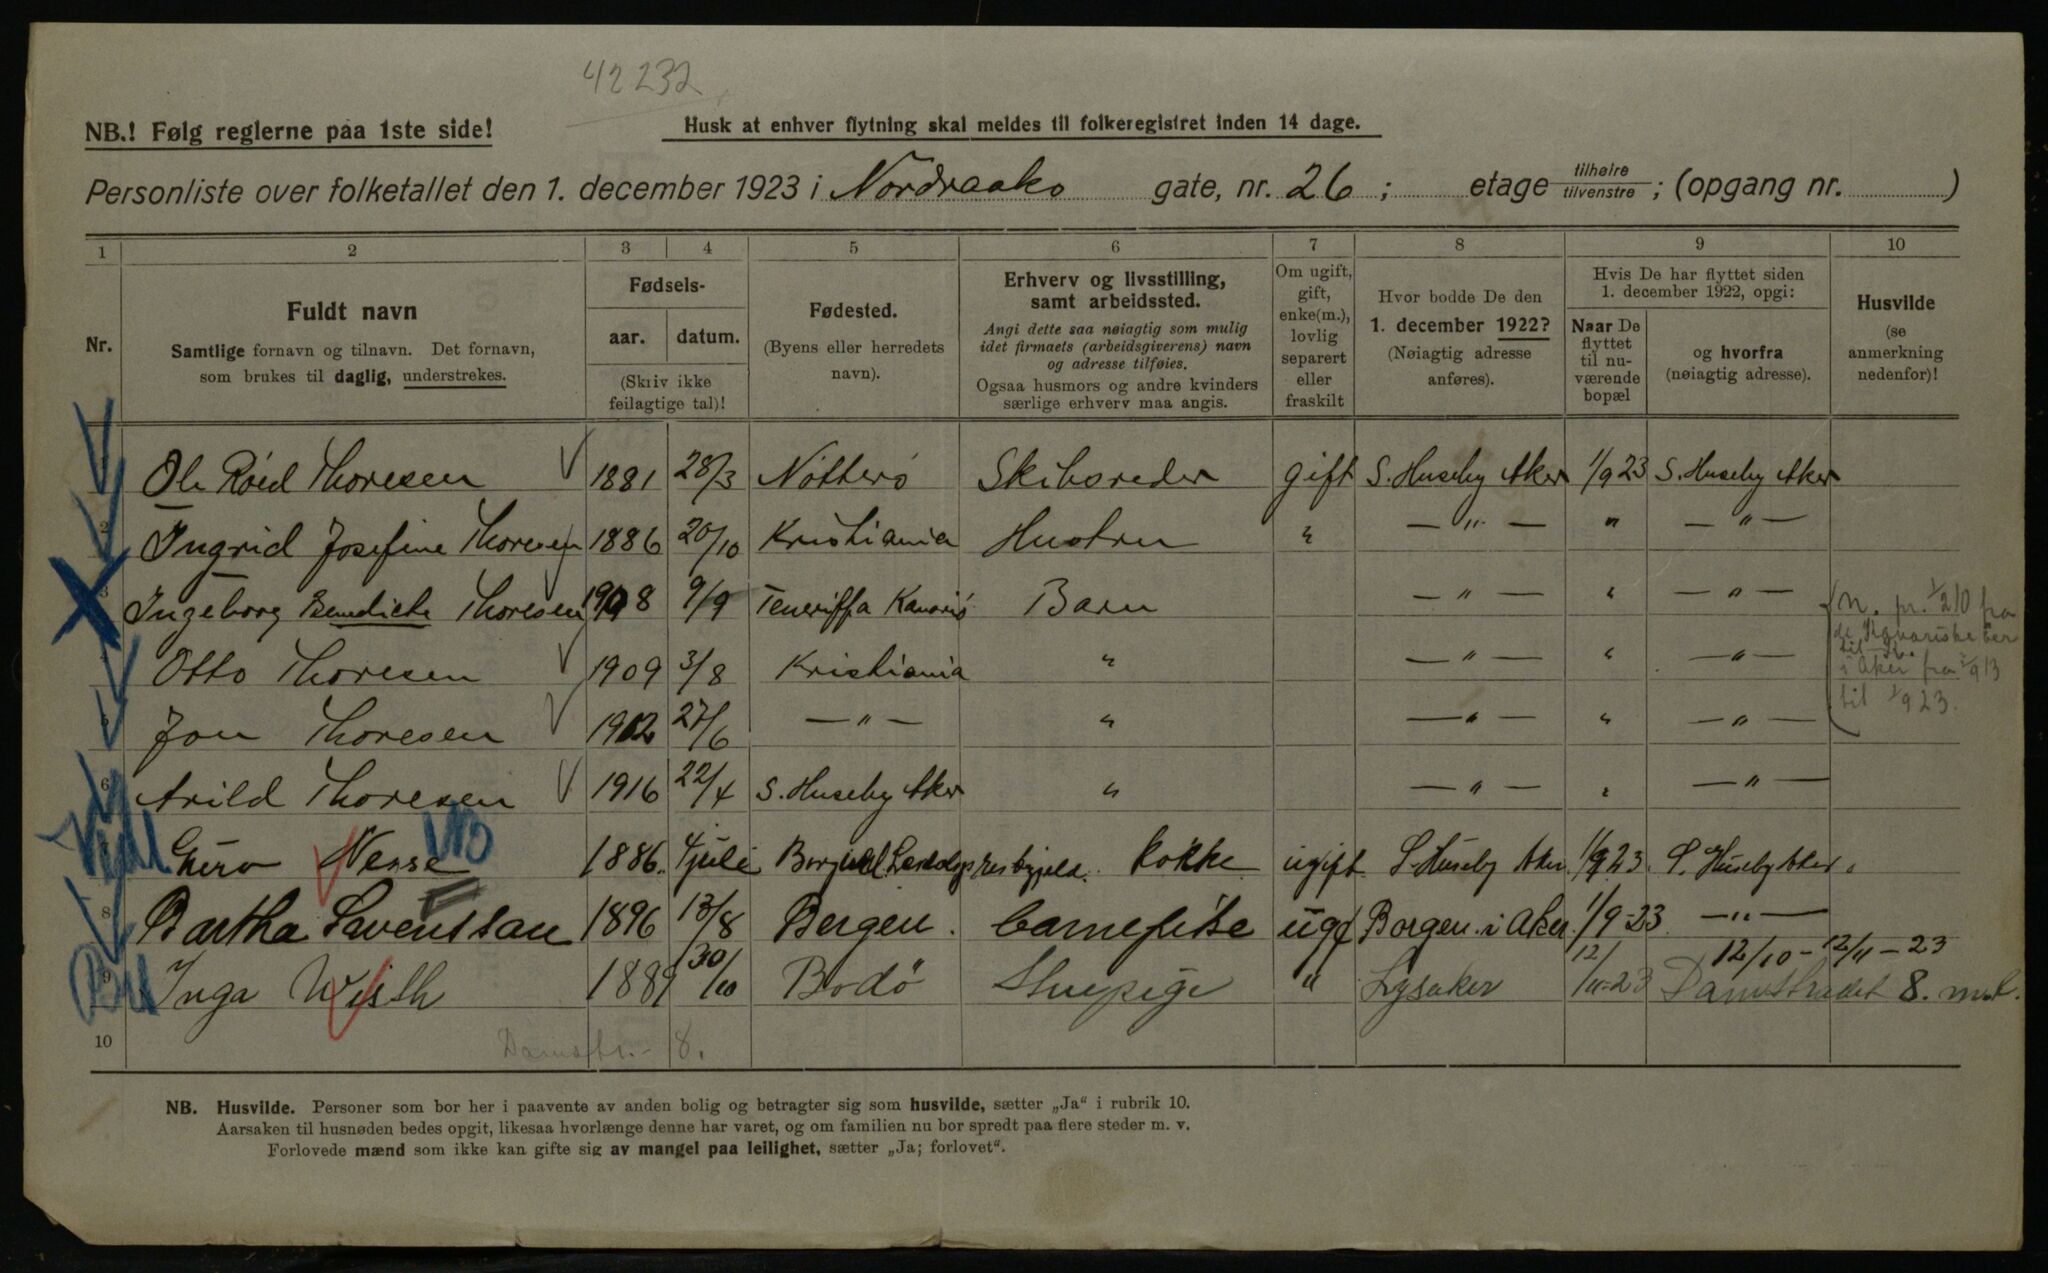 42232
NB.! Følg reglerne paa 1ste side!
Husk at enhver flytning skal meldes til folkeregistret inden 14 dage.
Personliste over folketallet den 1. december 1923 i Nordraaks gate, nr. 26; etage tilhøire tilvenstre; (opgang nr. )
1 2 3 4 5 6 7 8 9 10
Nr.
Fuldt navn
Samtlige fornavn og tilnavn. Det fornavn,
som brukes til daglig, understrekes.
Fødsels-
aar. datum.
(Skriv ikke
feilagtige tal)!
Fødested.
(Byens eller herredets
navn).
Erhverv og livsstilling,
samt arbeidssted.
Angi dette saa nøiagtig som mulig
idet firmaets (arbeidsgiverens) navn
og adresse tilføies.
Ogsaa husmors og andre kvinders
særlige erhverv maa angis.
Om ugift,
gift,
enke(m.),
lovlig
separert
eller
fraskilt
Hvor bodde De den
1. december 1922?
(Nøiagtig adresse
anføres).
Hvis De har flyttet siden
1. december 1922, opgi:
Naar De
flyttet
til nu-
værende
bopæl
og hvorfra
(nøiagtig adresse).
Husvilde
(se
anmerkning
nedenfor)!
1 Ole Róed Thoresen 1881 28/3 Nótteró Skibsreder gift S. Huseby Aker 1/9 23 S. Huseby Aker
2 Ingrid Josefine Thoresen 1886 20/10 Kristiania Hustru " — " — " — " —
3 Ingeborg Benedicte Thoresen 1908 9/9 Teneriffa Barn — " — " — " —
4 Otto Thoresen 1909 3/8 Kristiania " — " — " — " —
5 Jon Thoresen 1912 27/6 — " — " — " — " — " —
6 Arild Thoresen 1916 22/4 S. Huseby Aker " — " — " — " —
n. pr. 1/2 10 fra
i Aker fra
til 1/9 23.
7 Nesse 1886. 4 juli kokke ugift S. Huseby Aker 1/9 23. S. Huseby Aker.
8 Bartha 1896 13/8 Bergen. ugf Borgen i Aker 1/9-23 — " —
12/10 - 12/11 - 23
9 Inga Wisth 1889 30/10 Bodø Stuepige " Lysaker 12/11-23 Damstrædet 8.
10 Damstr. 8.
NB. Husvilde. Personer som bor her i paavente av anden bolig og betragter sig som husvilde, sætter „Ja“ i rubrik 10.
Aarsaken til husnøden bedes opgit, likesaa hvorlænge denne har varet, og om familien nu bor spredt paa flere steder m. v.
Forlovede mænd som ikke kan gifte sig av mangel paa leilighet, sætter „Ja; forlovet“.